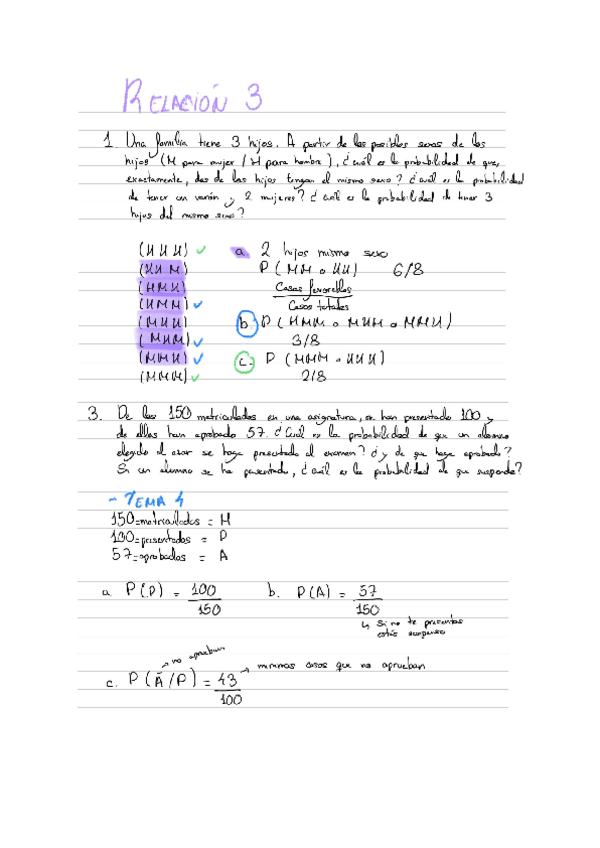 RELACIÓN 3
1. Una familia tiene 3 hijos. A partir de los posibles sexos de los
hijos (M para mujer / H para hombre), ¿cuál es la probabilidad de que,
exactamente, dos de los hijos tengan el mismo sexo? ¿cuál es la probabilidad
de tener un varón y 2 mujeres? ¿cuál es la probabilidad de tener 3
hijos del mismo sexo?
(H H H) ✓ a. 2 hijos mismo sexo
(H H M) P (MM o HH) 6/8
(H M H) Casos favorables
(H M M) ✓ Casos totales
(M H H) b. P (HMM o MHM o MMH)
(M H M) ✓ 3/8
(M M H) ✓ c. P (MMM o HHH)
(M M M) ✓ 2/8
3. De los 150 matriculados en una asignatura, se han presentado 100 y
de ellos han aprobado 57. ¿Cuál es la probabilidad de que un alumno
elegido al azar se haya presentado al examen? ¿y de que haya aprobado?
Si un alumno se ha presentado, ¿cuál es la probabilidad de que suspenda?
- TEMA 4
150=matriculados = M
100=presentados = P
57=aprobados = A
a. P(P) = 100 b. P(A) = 57
150 150
↳ si no te presentas
estás suspenso
→ no aprueban
c. P(Ā/P) = 43 → mismos casos que no aprueban
100